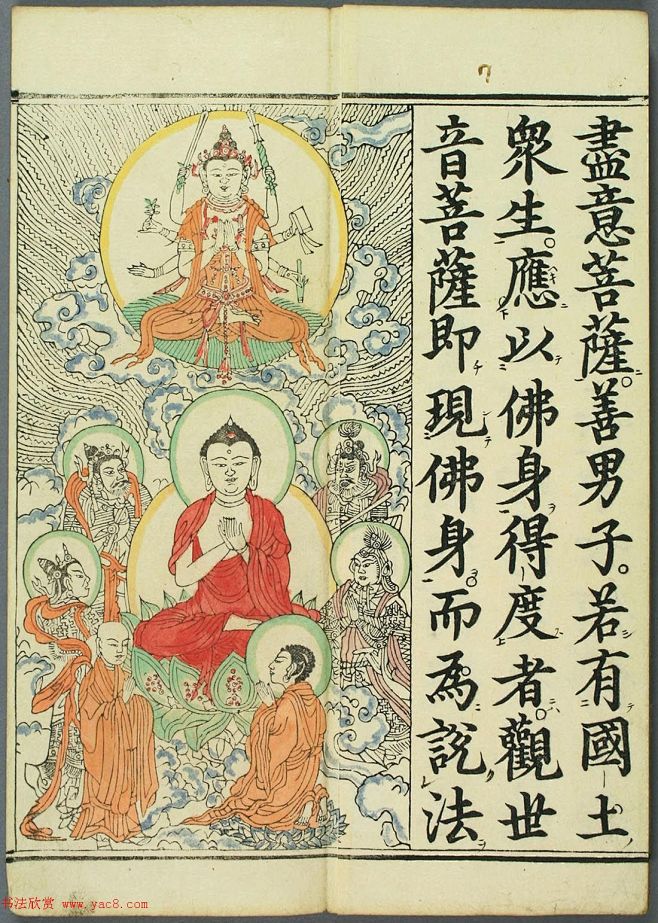 盡意菩薩。善男子。若有國土
衆生。應以佛身得度者。觀世
音菩薩即現佛身而爲說法
书法欣赏 www.yac8.com